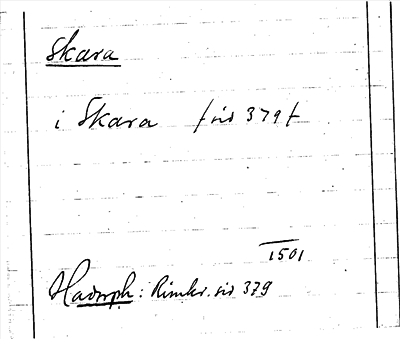 Skara
i Skara / sid 379 /
1501
Hadorph: Rimkr. sid 379